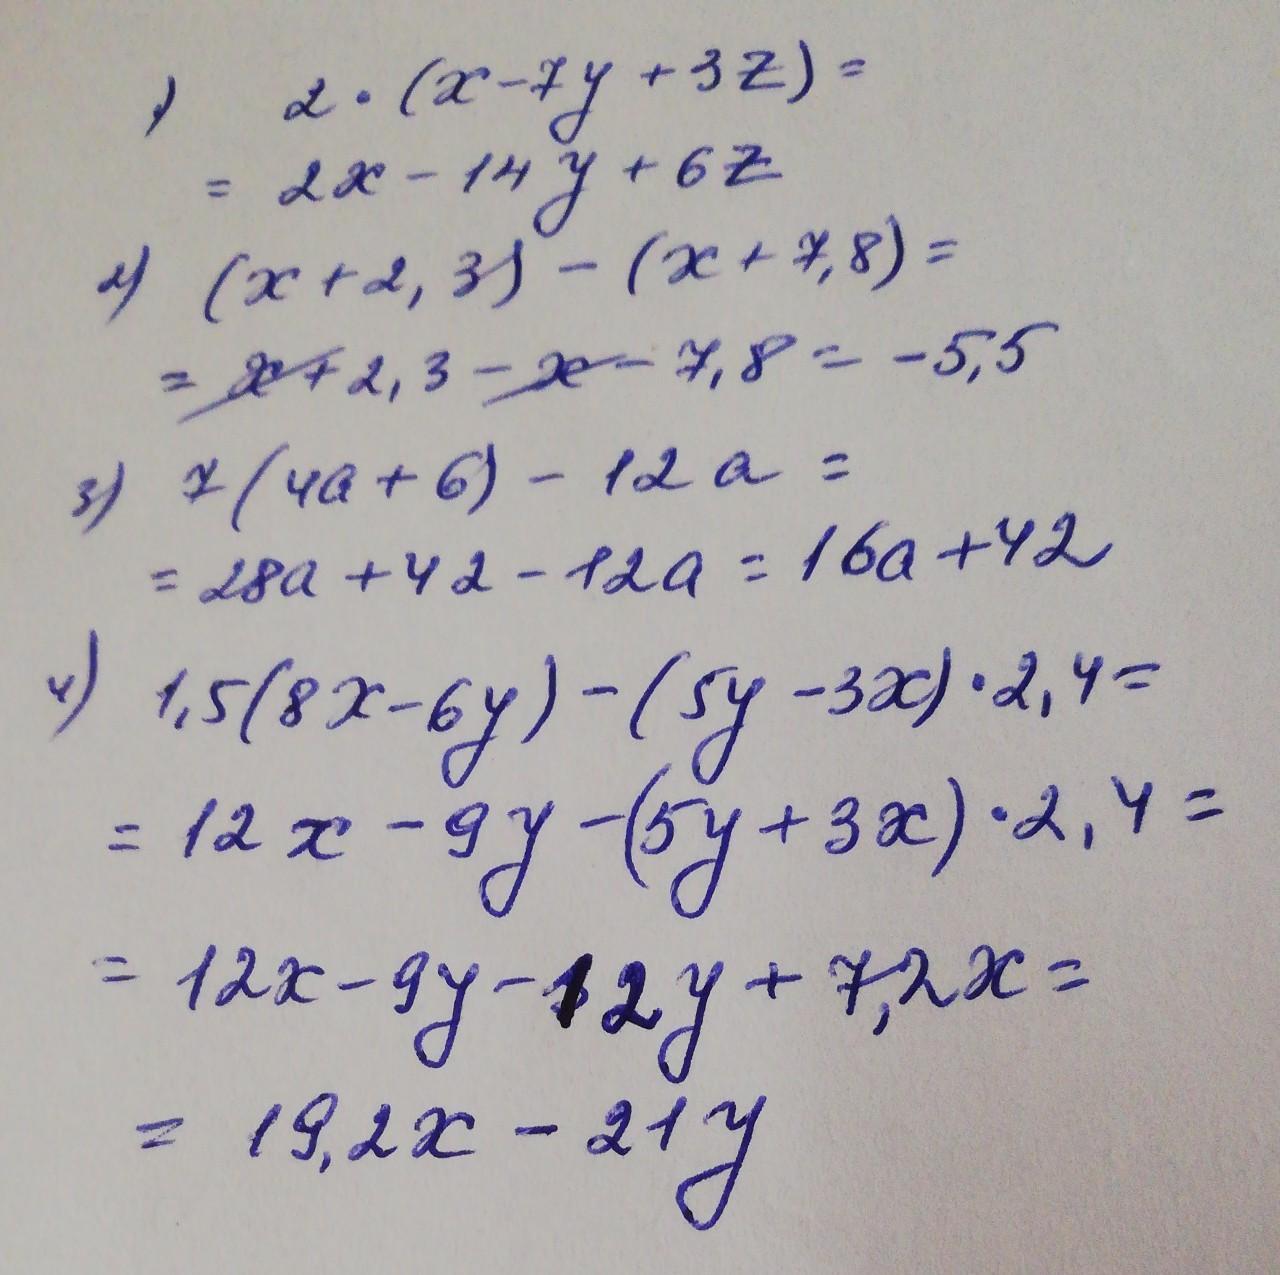 1) 2·(x-7y+3z)=
= 2x-14y+6z
2) (x+2,3)-(x+7,8)=
= x+2,3-x-7,8=-5,5
3) 7(4a+6)-12a=
=28a+42-12a=16a+42
4) 1,5(8x-6y)-(5y-3x)·2,4=
=12x-9y-(5y+3x)·2,4=
=12x-9y-12y+7,2x=
= 19,2x-21y